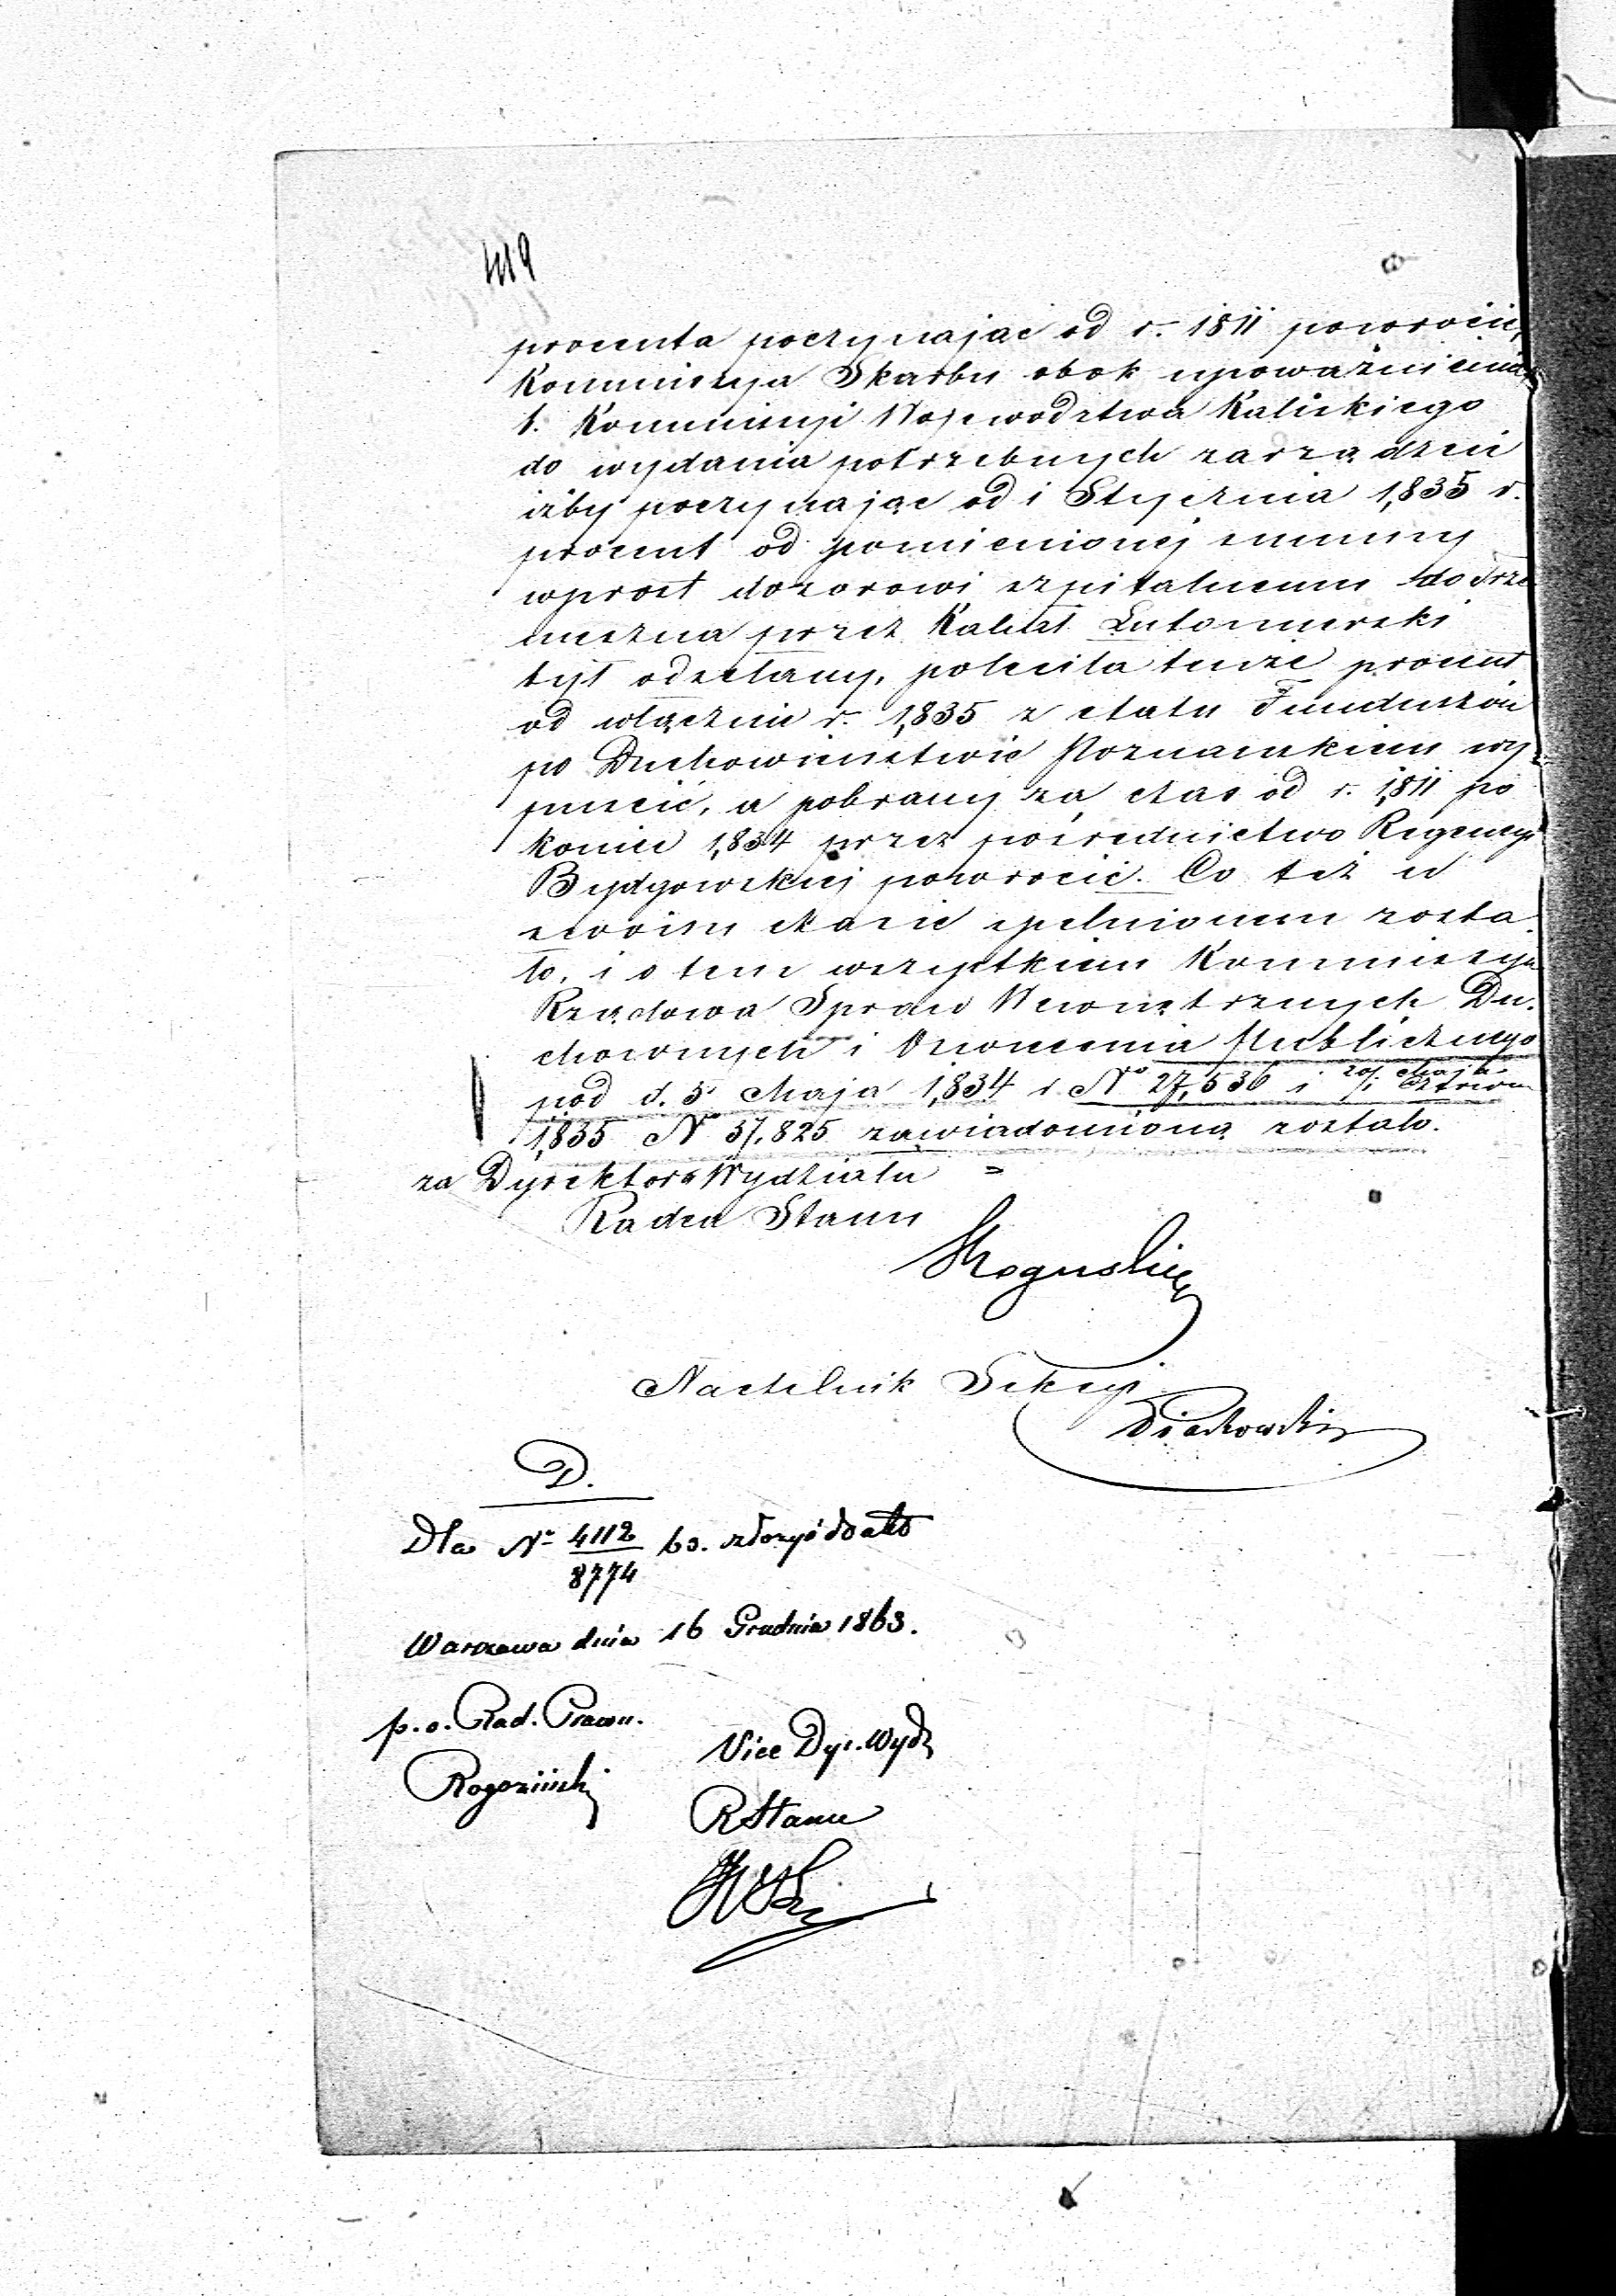 419
procenta poczynając od r. 1811 powrócić,
Kommissya Skarbu obok upoważnienia
b. Kommissyi Województwa Kaliskiego
do wydania potrzebnych zarządzeń
iżby poczynając od 1 Stycznia 1835 r.
procent od pomienionej summy
wprost dozorowi szpitalnemu do Trze
meszna przez Kahał Lutomierski
był odsełany, poleciła tenże procent
od włącznie r. 1835 z etatu Funduszów
po Duchowieństwie Poznańskiem wy-
puścić, a pobrany za czas od r. 1811 po
koniec 1834 przez pośrednictwo Regencyi
Bydgowskiej powrócić. Co też w
swoim czasie spełnionem zosta
ło, i o tem wszystkiem Kommissya
Rządowa Spraw Wewnętrznych Du-
chownych i Oświecenia Publicznego
pod d. 5 Maja 1834 r. No 27,536 i 20 Maja / 1 Czerwca
1835 No 37,825 zawiadomioną zostało.
za Dyrektora Wydziału =
Radca Stanu
Naczelnik Sekcyi
D.
Dla No 4112/8774 63. złożyć do akt
Warszawa dnia 16 Grudnia 1863.
p.o. Rad. Prawn.
Vice Dyr. Wydz
Rogoziński
R Stanu